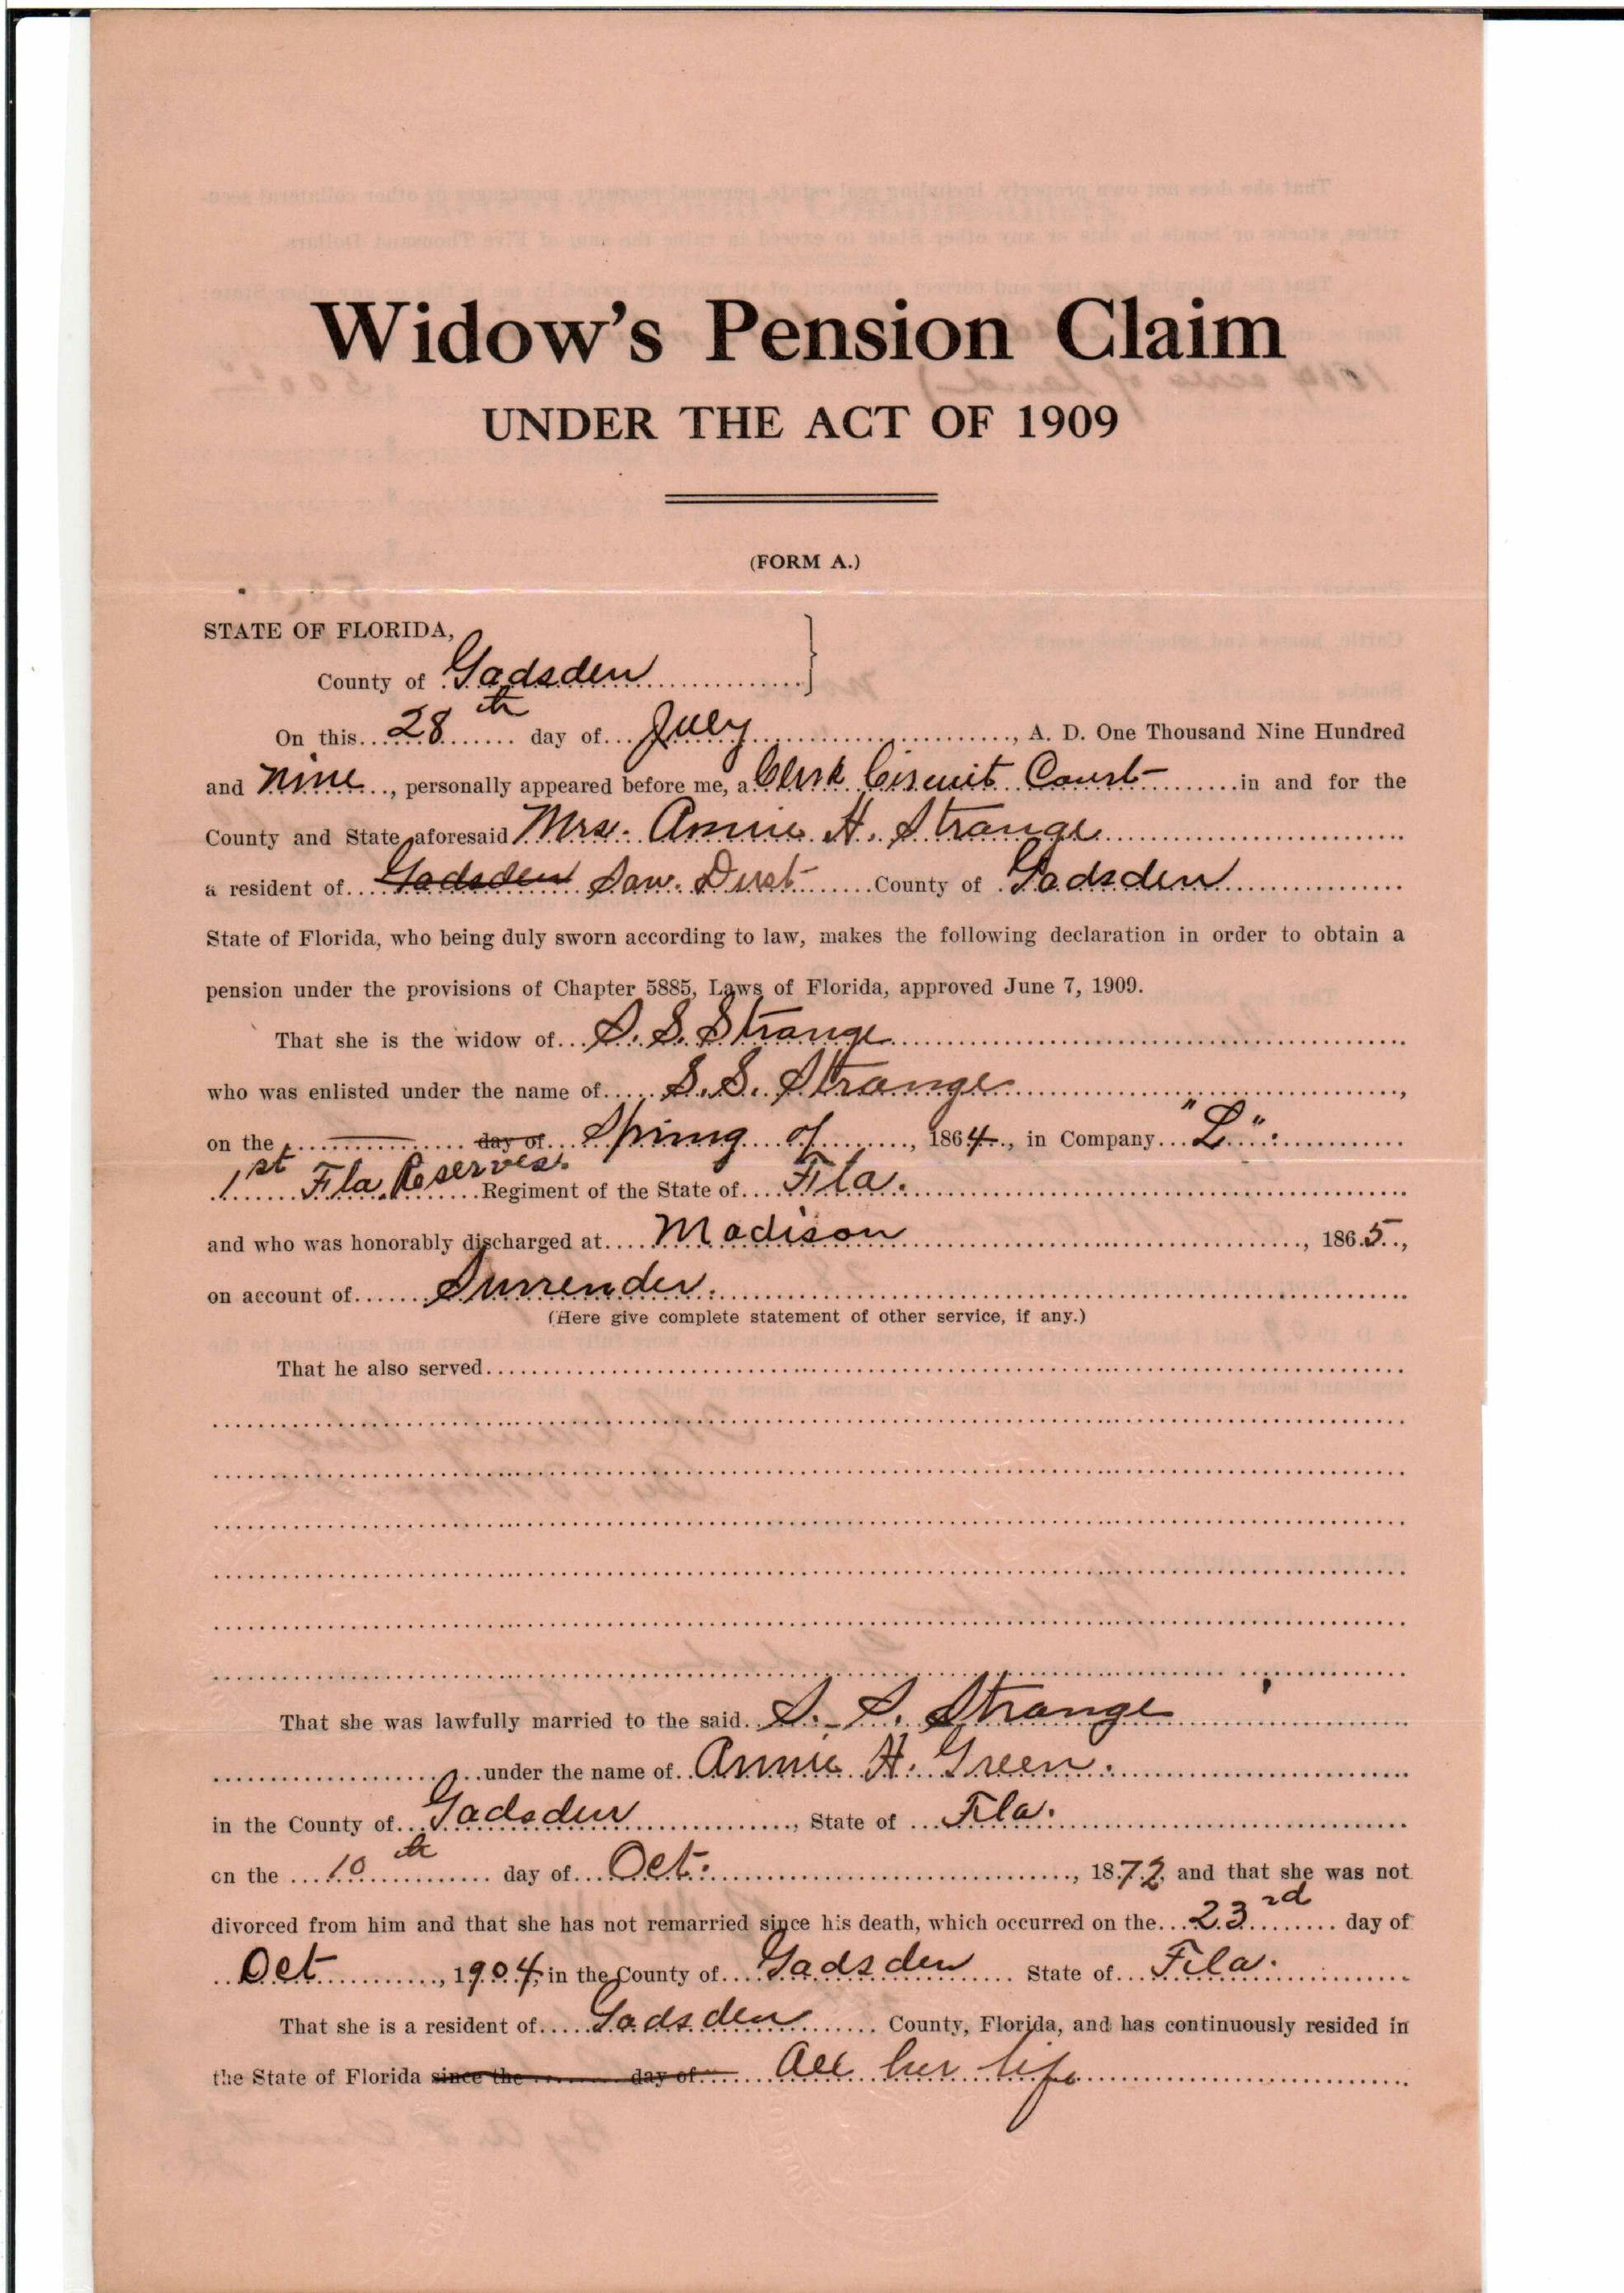 Widow's Pension Claim
UNDER THE ACT OF 1909
(FORM A.)
STATE OF FLORIDA,
County of Gadsden
On this 28th day of July, A. D. One Thousand Nine Hundred
and nine, personally appeared before me, a Clerk Circuit Court in and for the
County and State aforesaid Mrs. Annie H. Strange
a resident of Gadsden Saw Dust County of Gadsden
State of Florida, who being duly sworn according to law, makes the following declaration in order to obtain a
pension under the provisions of Chapter 5885, Laws of Florida, approved June 7, 1909.
That she is the widow of S. S. Strange
who was enlisted under the name of S. S. Strange,
on the day of Spring of, 1864, in Company "L".
1st Fla. Reserves. Regiment of the State of Fla.
and who was honorably discharged at Madison, 1865,
on account of Surrender.
(Here give complete statement of other service, if any.)
That he also served
That she was lawfully married to the said S. S. Strange
under the name of Annie H. Green.
in the County of Gadsden, State of Fla.
on the 10th day of Oct., 1872, and that she was not
divorced from him and that she has not remarried since his death, which occurred on the 23rd day of
Oct, 1904, in the County of Gadsden State of Fla.
That she is a resident of Gadsden County, Florida, and has continuously resided in
the State of Florida since the day of All her life